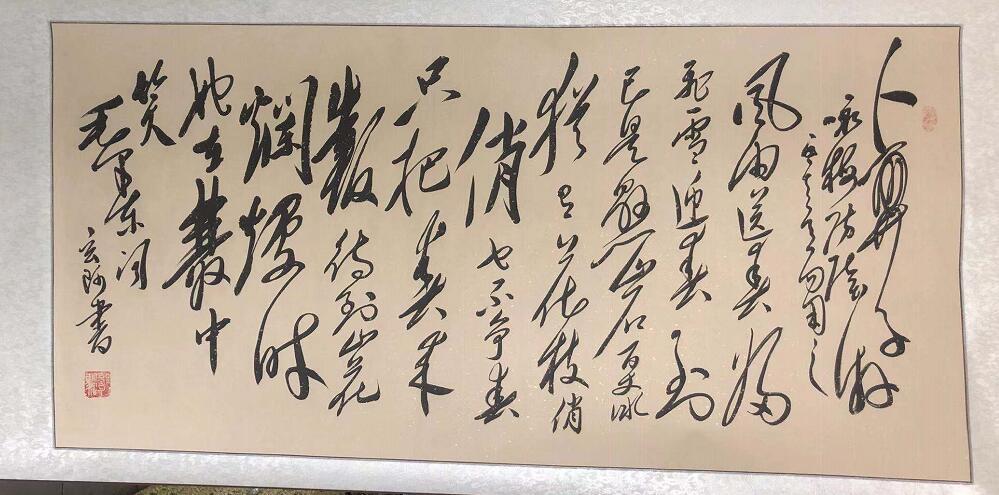 卜算子
咏梅仿陆游
而用之
风雨送春归
飞雪迎春到
已是悬崖百丈冰
犹有花枝俏
俏也不争春
只把春来
报待到山花
烂熳时
她在叢中
笑
毛泽东词
书